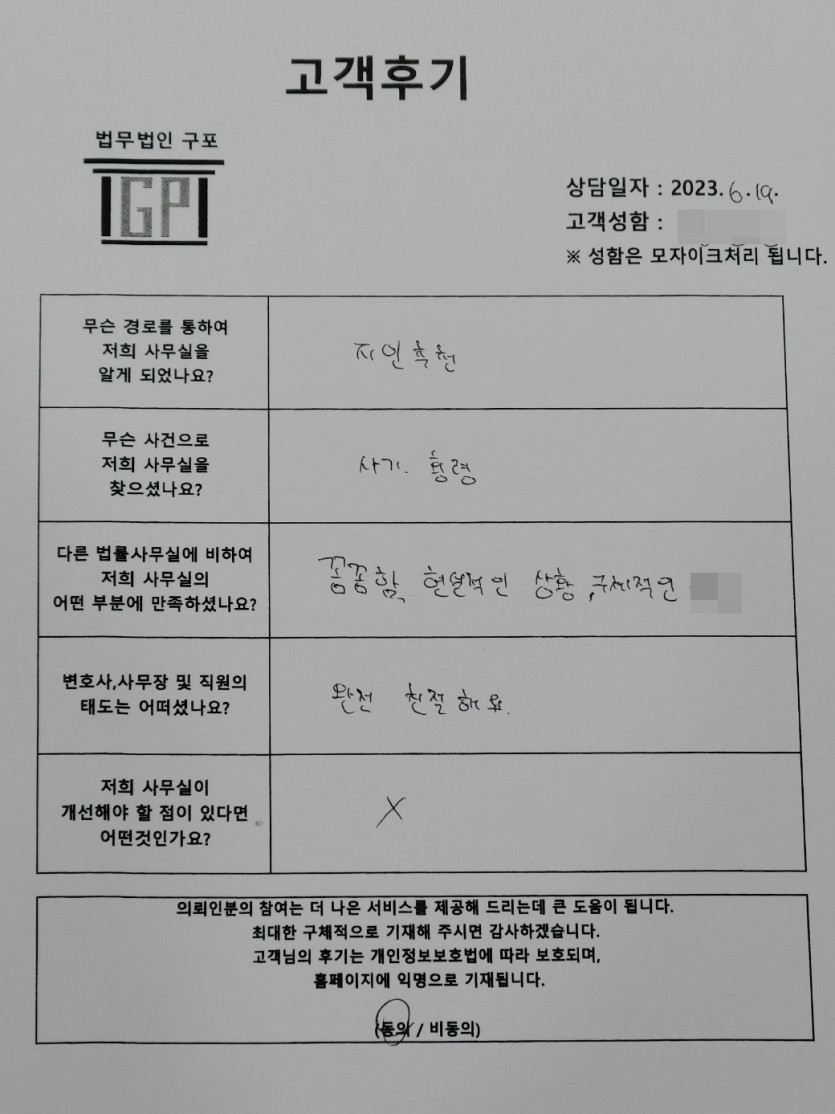 고객후기
법무법인 구포
IGPI
상담일자 : 2023. 6. 19.
고객성함 :
※ 성함은 모자이크처리 됩니다.
무슨 경로를 통하여
저희 사무실을
알게 되었나요?
지인추천
무슨 사건으로
저희 사무실을
찾으셨나요?
사기. 횡령
다른 법률사무실에 비하여
저희 사무실의
어떤 부분에 만족하셨나요?
꼼꼼함, 현실적인 상황, 구체적인
변호사,사무장 및 직원의
태도는 어떠셨나요?
완전 친절해요.
저희 사무실이
개선해야 할 점이 있다면
어떤것인가요?
X
의뢰인분의 참여는 더 나은 서비스를 제공해 드리는데 큰 도움이 됩니다.
최대한 구체적으로 기재해 주시면 감사하겠습니다.
고객님의 후기는 개인정보보호법에 따라 보호되며,
홈페이지에 익명으로 기재됩니다.
(동의 / 비동의)